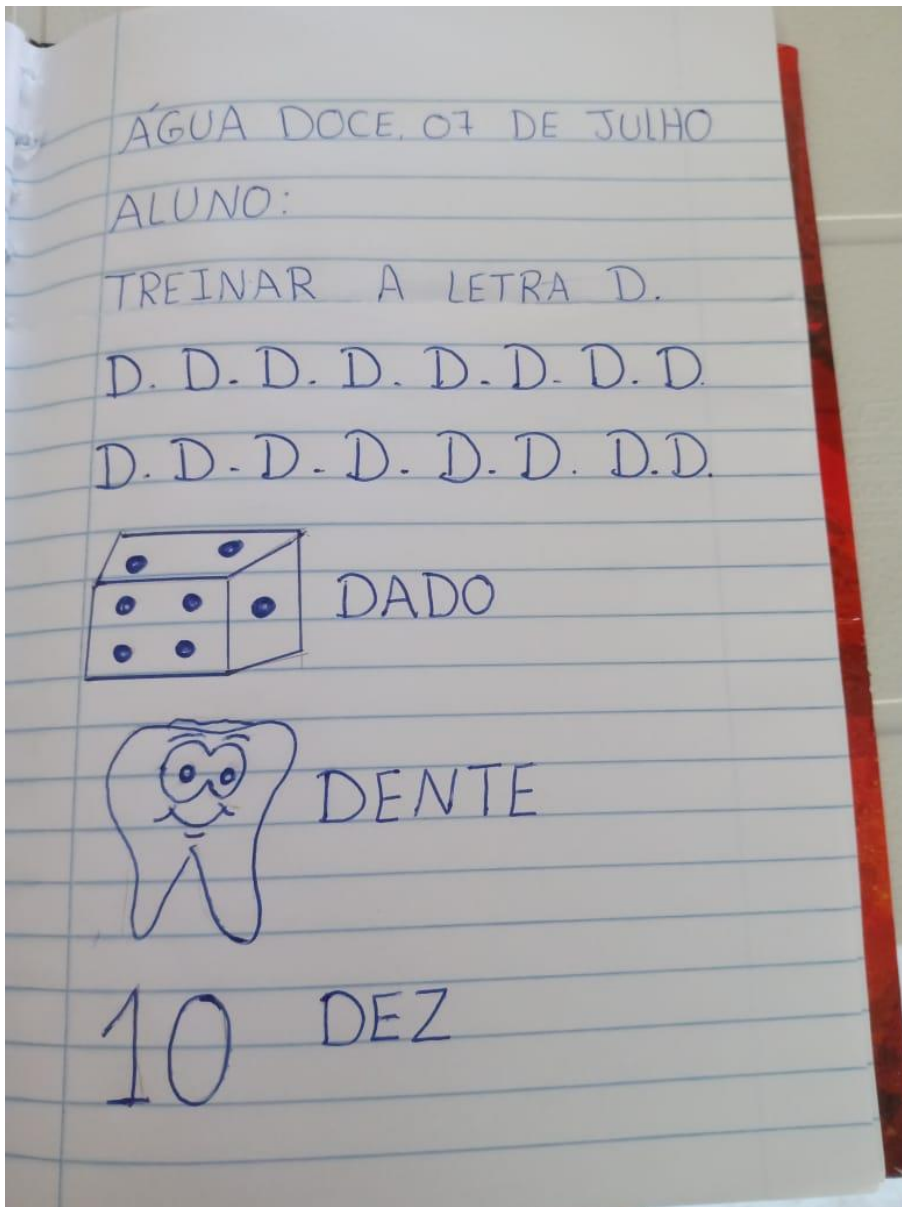 ÁGUA DOCE, 07 DE JULHO
ALUNO:
TREINAR A LETRA D.
D. D. D. D. D. D. D. D.
D. D. D. D. D. D. D. D.
DADO
DENTE
10 DEZ